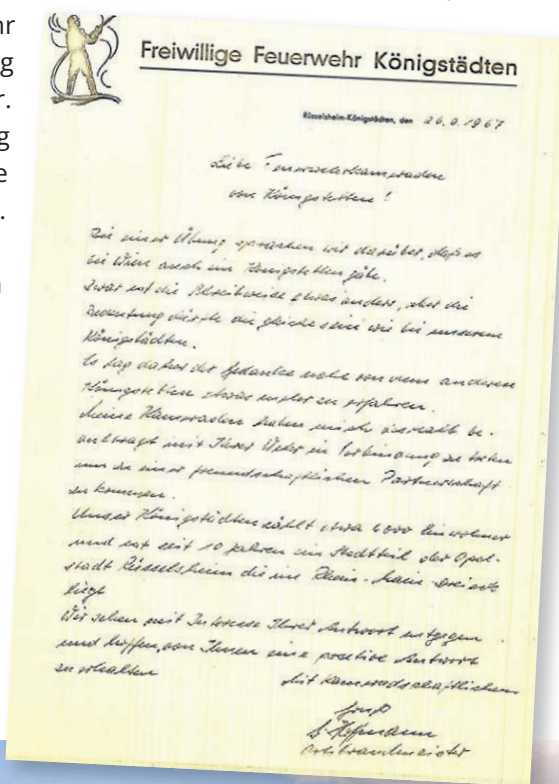 hr
g
r.
g
e
.
n
Freiwillige Feuerwehr Königstädten
Rüsselsheim-Königstädten, den 26.8.1967
Liebe Feuerwehrkameraden
von Königstetten!
Bei einer Übung sprachen wir darüber, daß es
bei Wien auch ein Königstetten gäbe.
Zwar ist die Schreibweise etwas anders, aber die
Bedeutung dürfte die gleiche sein wie bei unserem
Königstädten.
Es lag daher der Gedanke nahe von dem anderen
Königstetten etwas mehr zu erfahren.
Meine Kameraden haben mich deshalb be-
auftragt mit Ihrer Wehr in Verbindung zu treten
um zu einer freundschaftlichen Partnerschaft
zu kommen.
Unser Königstädten zählt etwa 6000 Einwohner
und ist seit 10 Jahren ein Stadtteil der Opel-
stadt Rüsselsheim die im Rhein-Main-Dreieck
liegt
Wir sehen mit Interesse Ihrer Antwort entgegen
und hoffen, von Ihnen eine positive Antwort
zu erhalten
Mit kameradschaftlichem
Gruß
Hoffmann
Ortsbrandmeister